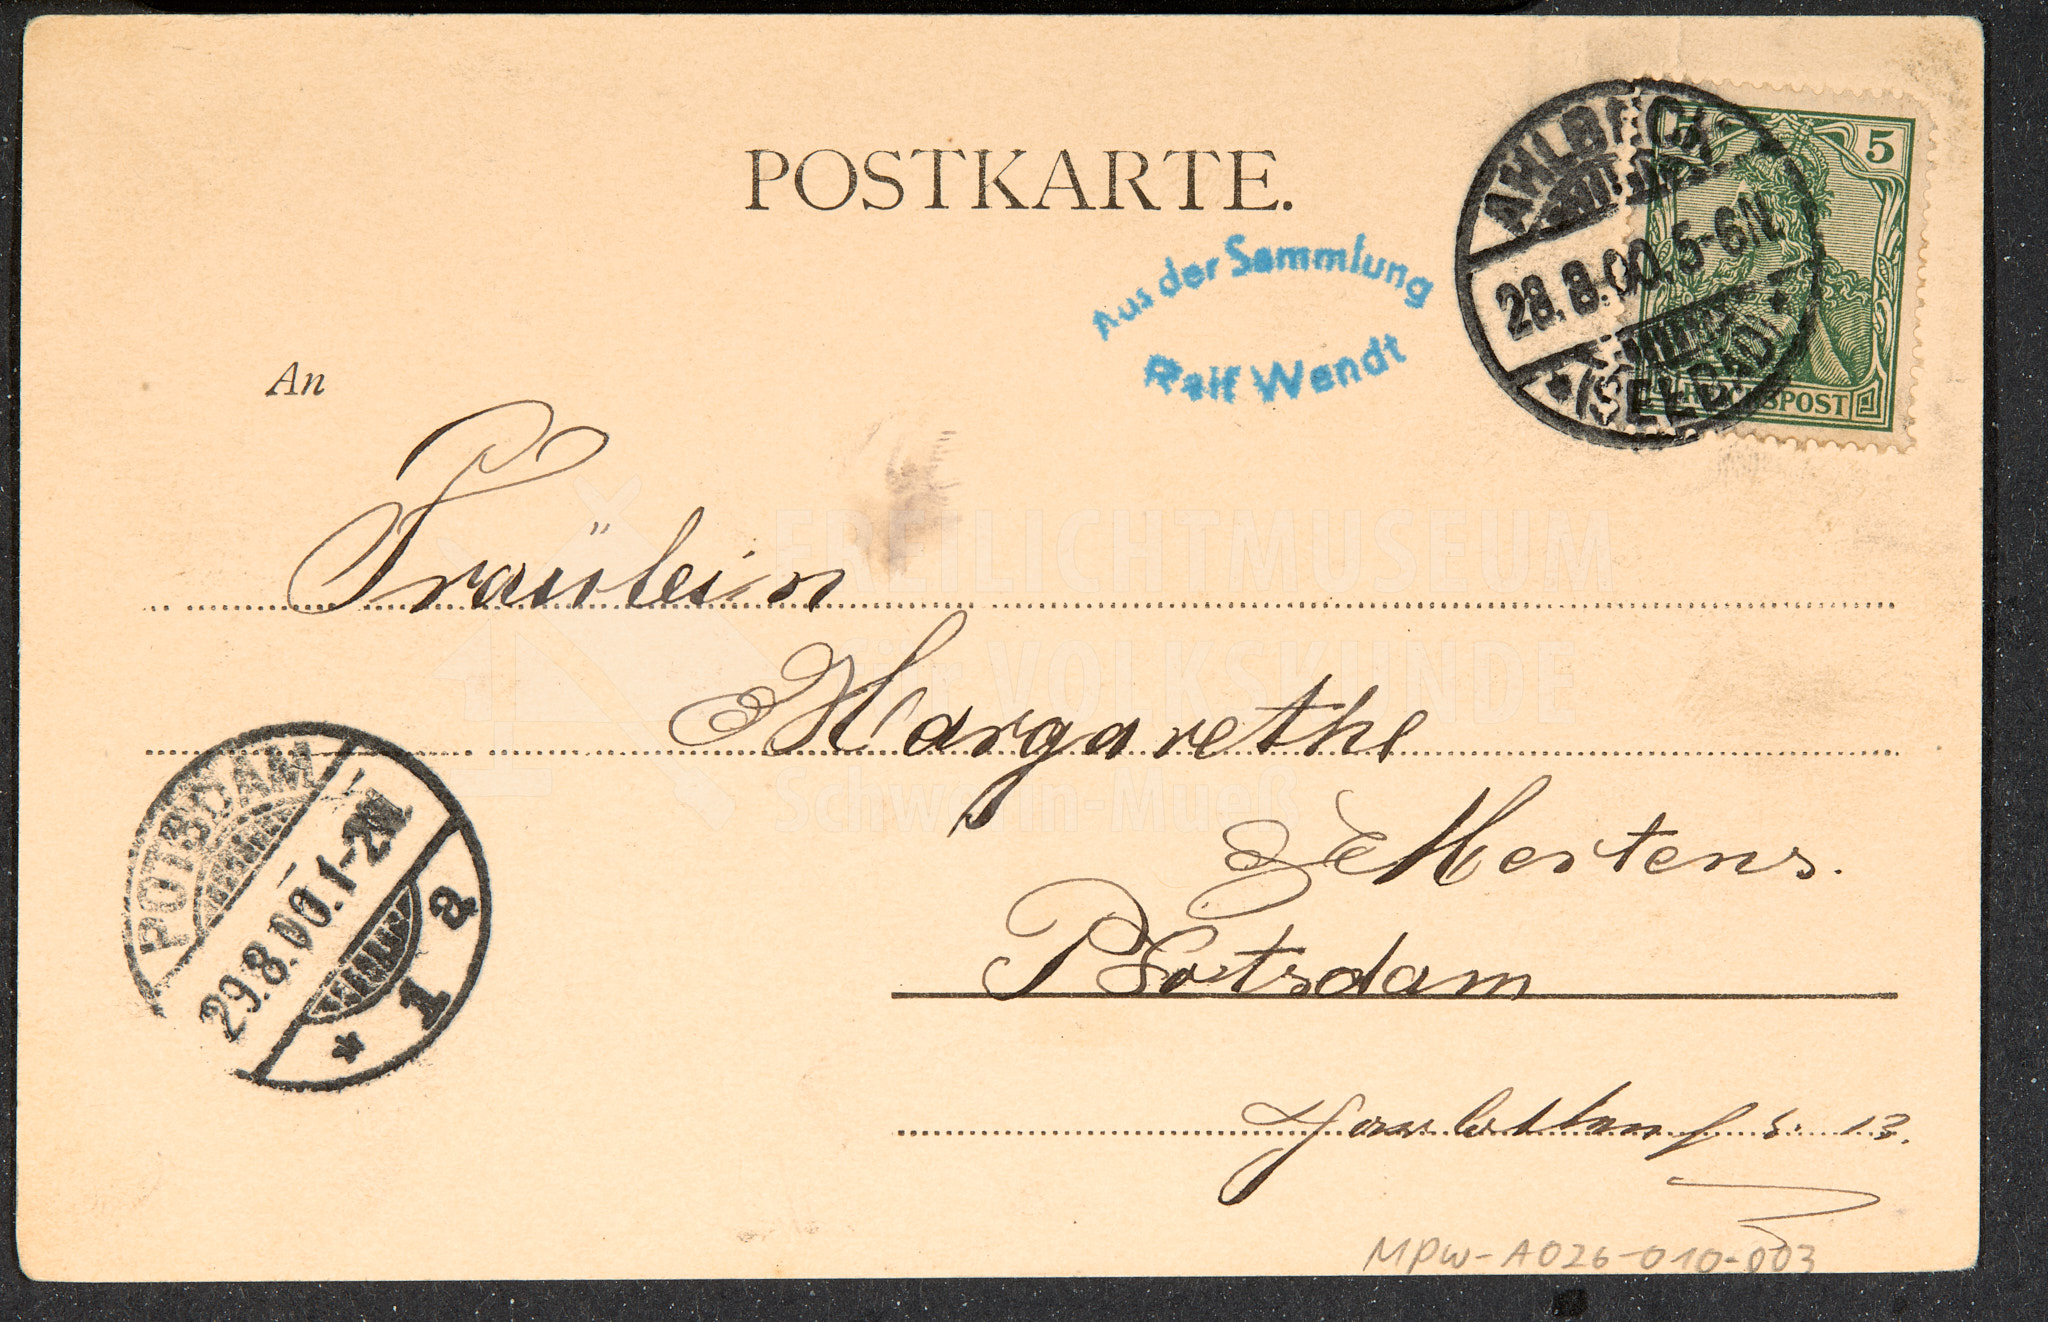 POSTKARTE.
AHLBECK
28.8.00. 5-6N.
(SEEBAD)
5
REICHSPOST
Aus der Sammlung
Ralf Wendt
An
Fräulein
FREILICHTMUSEUM
Margarethe
für VOLKSKUNDE
Schwerin-Mueß
Mertens.
Potsdam
13.
POTSDAM
29.8.00.1-2N.
* 1 a
MPW-A026-010-003